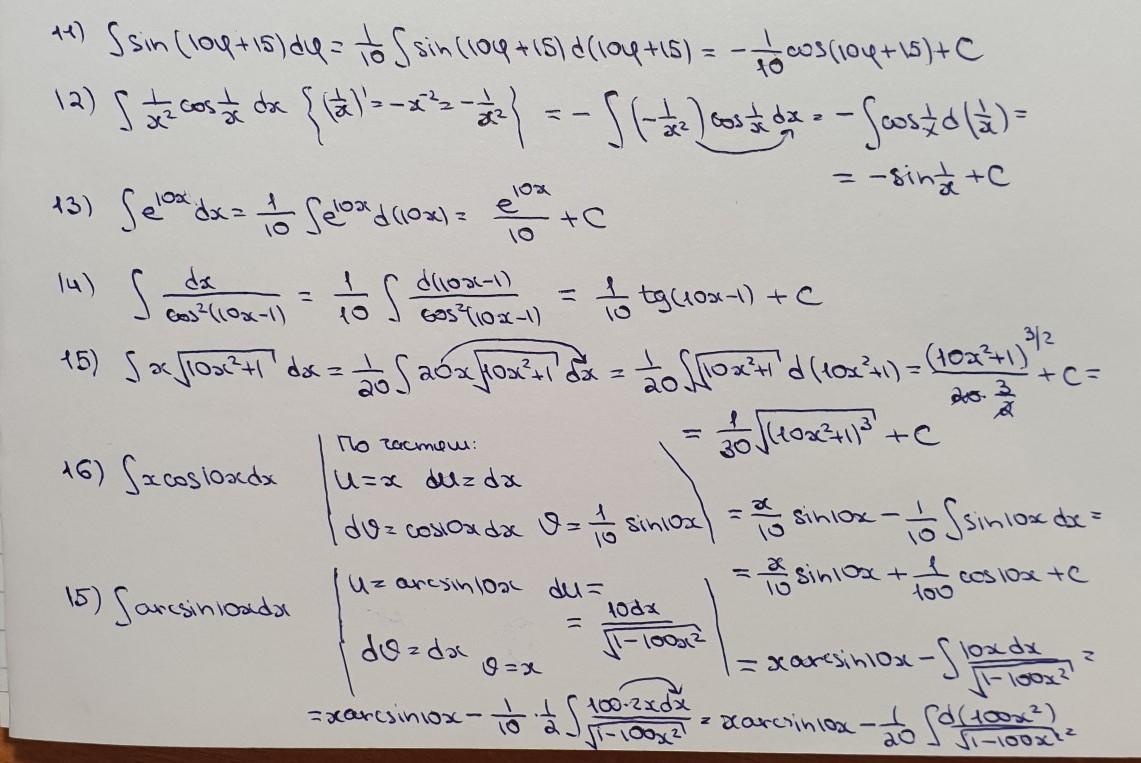 11) ∫sin(10φ+15)dφ = 1/10 ∫sin(10φ+15)d(10φ+15) = -1/10 cos(10φ+15)+C
12) ∫ 1/x² cos 1/x dx {(1/x)' = -x⁻² = -1/x²} = -∫(-1/x²) cos 1/x dx = -∫cos 1/x d(1/x) =
= -sin 1/x + C
13) ∫e^(10x) dx = 1/10 ∫e^(10x) d(10x) = e^(10x)/10 + C
14) ∫ dx/cos²(10x-1) = 1/10 ∫ d(10x-1)/cos²(10x-1) = 1/10 tg(10x-1) + C
15) ∫x√(10x²+1) dx = 1/20 ∫20x√(10x²+1) dx = 1/20 ∫√(10x²+1) d(10x²+1) = (10x²+1)^(3/2)/(20·3/2) + C =
= 1/30 √((10x²+1)³) + C
16) ∫x cos10x dx | По частям:
u = x du = dx
dv = cos10x dx v = 1/10 sin10x | = x/10 sin10x - 1/10 ∫sin10x dx =
= x/10 sin10x + 1/100 cos10x + C
15) ∫arcsin10x dx | u = arcsin10x du =
= 10dx/√(1-100x²)
dv = dx v = x | = x arcsin10x - ∫ 10x dx/√(1-100x²) =
= x arcsin10x - 1/10 · 1/2 ∫ 100·2x dx/√(1-100x²) = x arcsin10x - 1/20 ∫ d(100x²)/√(1-100x²) =